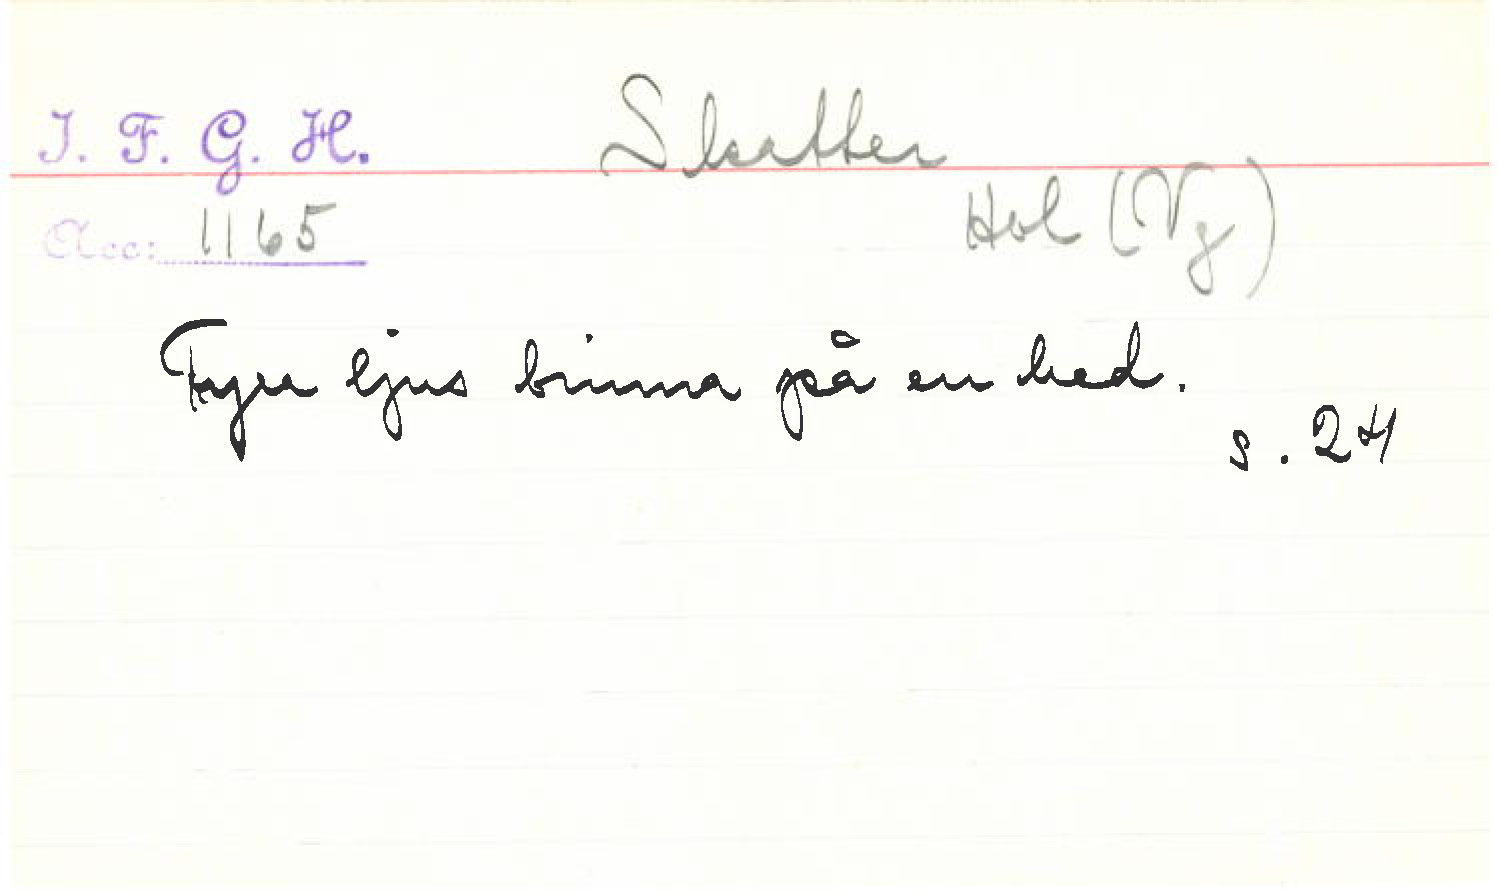 I. F. G. H.
Skatter
Acc: 1165
Hol (Vg)
Fyra ljus brinna på en hed.
s. 24